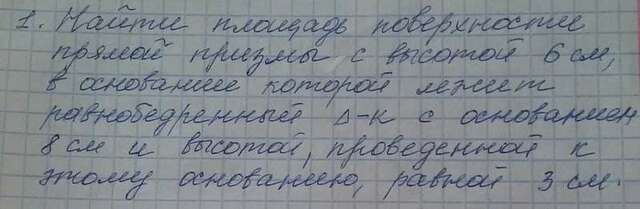 1. Найти площадь поверхности
прямой призмы с высотой 6 см,
в основание которой лежит
равнобедренный Δ-к с основанием
8 см и высотой, проведенной к
этому основанию, равной 3 см.